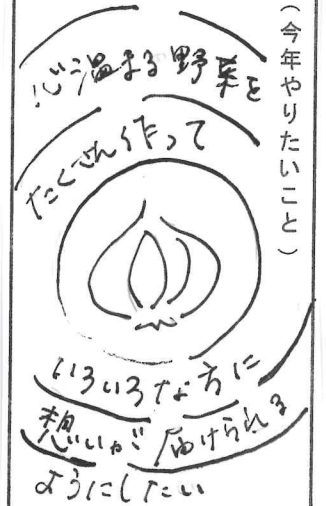 (今年やりたいこと)
心温まる野菜を
たくさん作って
いろいろな方に
想いが届けられる
ようにしたい